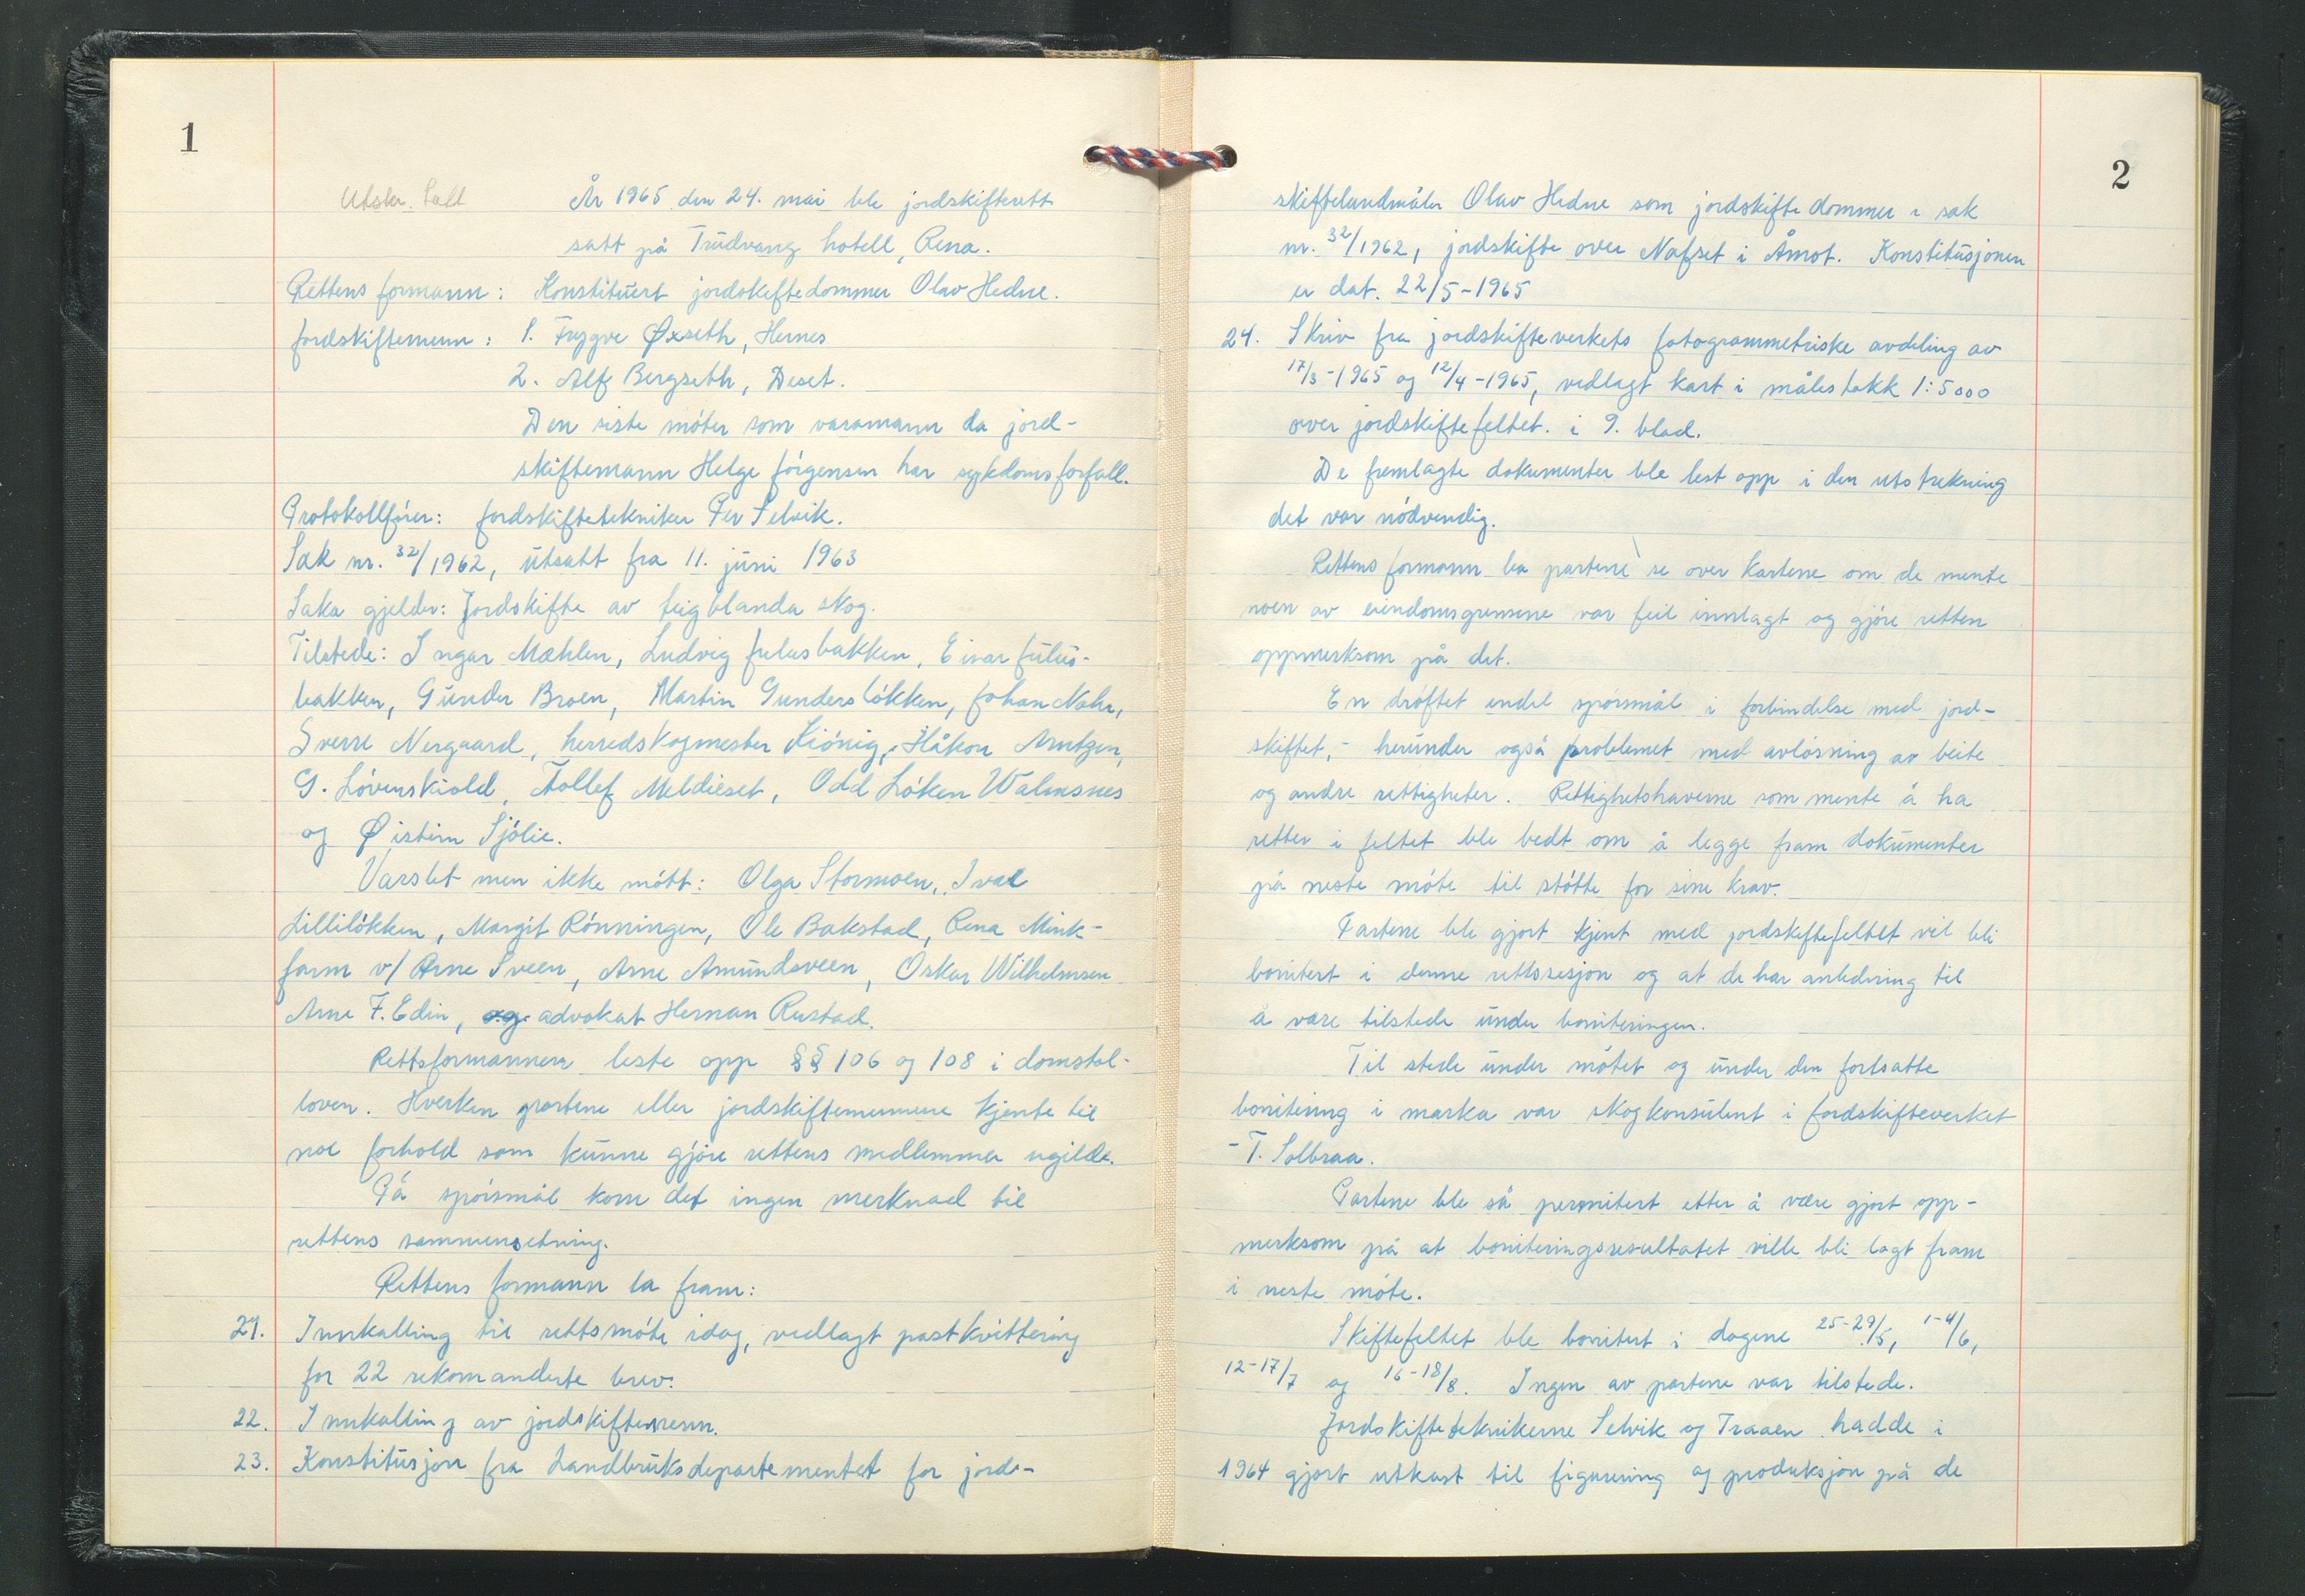 1
Utskr. Salt
År 1965 den 24. mai ble jordskifterett
satt på Trudvang hotell, Rena.
Rettens formann: Konstituert jordskiftedommer Olav Hedne.
Jordskiftemenn: 1. Trygve Øxseth, Hernes
2. Alf Bergseth, Deset.
Den siste møter som varamann da jord-
skiftemann Helge Jørgensen har sykdomsforfall.
Protokollfører: Jordskiftetekniker Per Selvik.
Sak nr. 32/1962, utsatt fra 11. juni 1963
Saka gjelder: Jordskifte av teigblanda skog.
Tilstede: Ingar Mæhlen, Ludvig Julusbakken, Einar Julus-
bakken, Gunder Broen, Martin Gundersløkken, Johan Nahr,
Sverre Nergaard, herredskogmester Kiønig, Håkon Arntzen,
G. Løvenskiold, Tollef Meldieset, Odd Løken Walmsnes
og Øistein Sjølie.
Varslet men ikke møtt: Olga Stormoen, Ival
Lilliløkken, Margit Rønningen, Ole Bakstad, Rena Mink-
farm v/ Arne Sveen, Arne Amundsveen, Oskar Wilhelmsen
Arne F. Edin, og advokat Herman Rustad.
Rettsformannen leste opp §§ 106 og 108 i domstol-
loven. Hverken partene eller jordskiftemennene kjente til
noe forhold som kunne gjøre rettens medlemmer ugilde.
På spørsmål kom det ingen merknad til
rettens sammensetning.
Rettens formann la fram:
21. Innkalling til rettsmøte idag, vedlagt postkvittering
for 22 rekomanderte brev.
22. Innkalling av jordskiftemenn.
23. Konstitusjon fra Landbruksdepartementet for jord-
2
skiftelandmåler Olav Hedne som jordskiftedommer i sak
nr. 32/1962, jordskifte over Nafset i Åmot. Konstitusjonen
er dat. 22/5-1965
24. Skriv fra jordskifteverkets fotogrammetriske avdeling av
17/3-1965 og 12/4-1965, vedlagt kart i målestokk 1:5000
over jordskiftefeltet. i 9. blad.
De fremlagte dokumenter ble lest opp i den utstrekning
det var nødvendig.
Rettens formann ba partene se over kartene om de mente
noen av eiendomsgrensene var feil innlagt og gjøre retten
oppmerksom på det.
En drøftet endel spørsmål i forbindelse med jord-
skiftet, - herunder også problemet med avløsning av beite
og andre rettigheter. Rettighetshaverne som mente å ha
retter i feltet ble bedt om å legge fram dokumenter
på neste møte til støtte for sine krav.
Partene ble gjort kjent med jordskiftefeltet vil bli
bonitert i denne rettssesjon og at de har anledning til
å være tilstede under boniteringen.
Til stede under møtet og under den fortsatte
bonitering i marka var skogkonsulent i Jordskifteverket
- T. Solbraa.
Partene ble så permitert etter å være gjort opp-
merksom på at boniteringsresultatet ville bli lagt fram
i neste møte.
Skiftefeltet ble bonitert i dagene 25-29/5, 1-4/6,
12-17/7 og 16-18/8. Ingen av partene var tilstede.
Jordskifteteknikerne Selvik og Traaen hadde i
1964 gjort utkast til figurering og produksjon på de